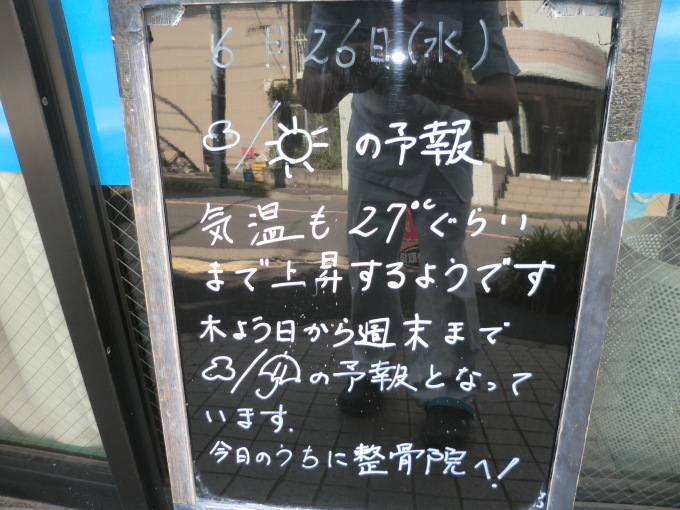 6月26日(水)
☁/☀の予報
気温も27℃ぐらい
まで上昇するようです
木よう日から週末まで
☁/☂の予報となって
います.
今日のうちに整骨院へ!